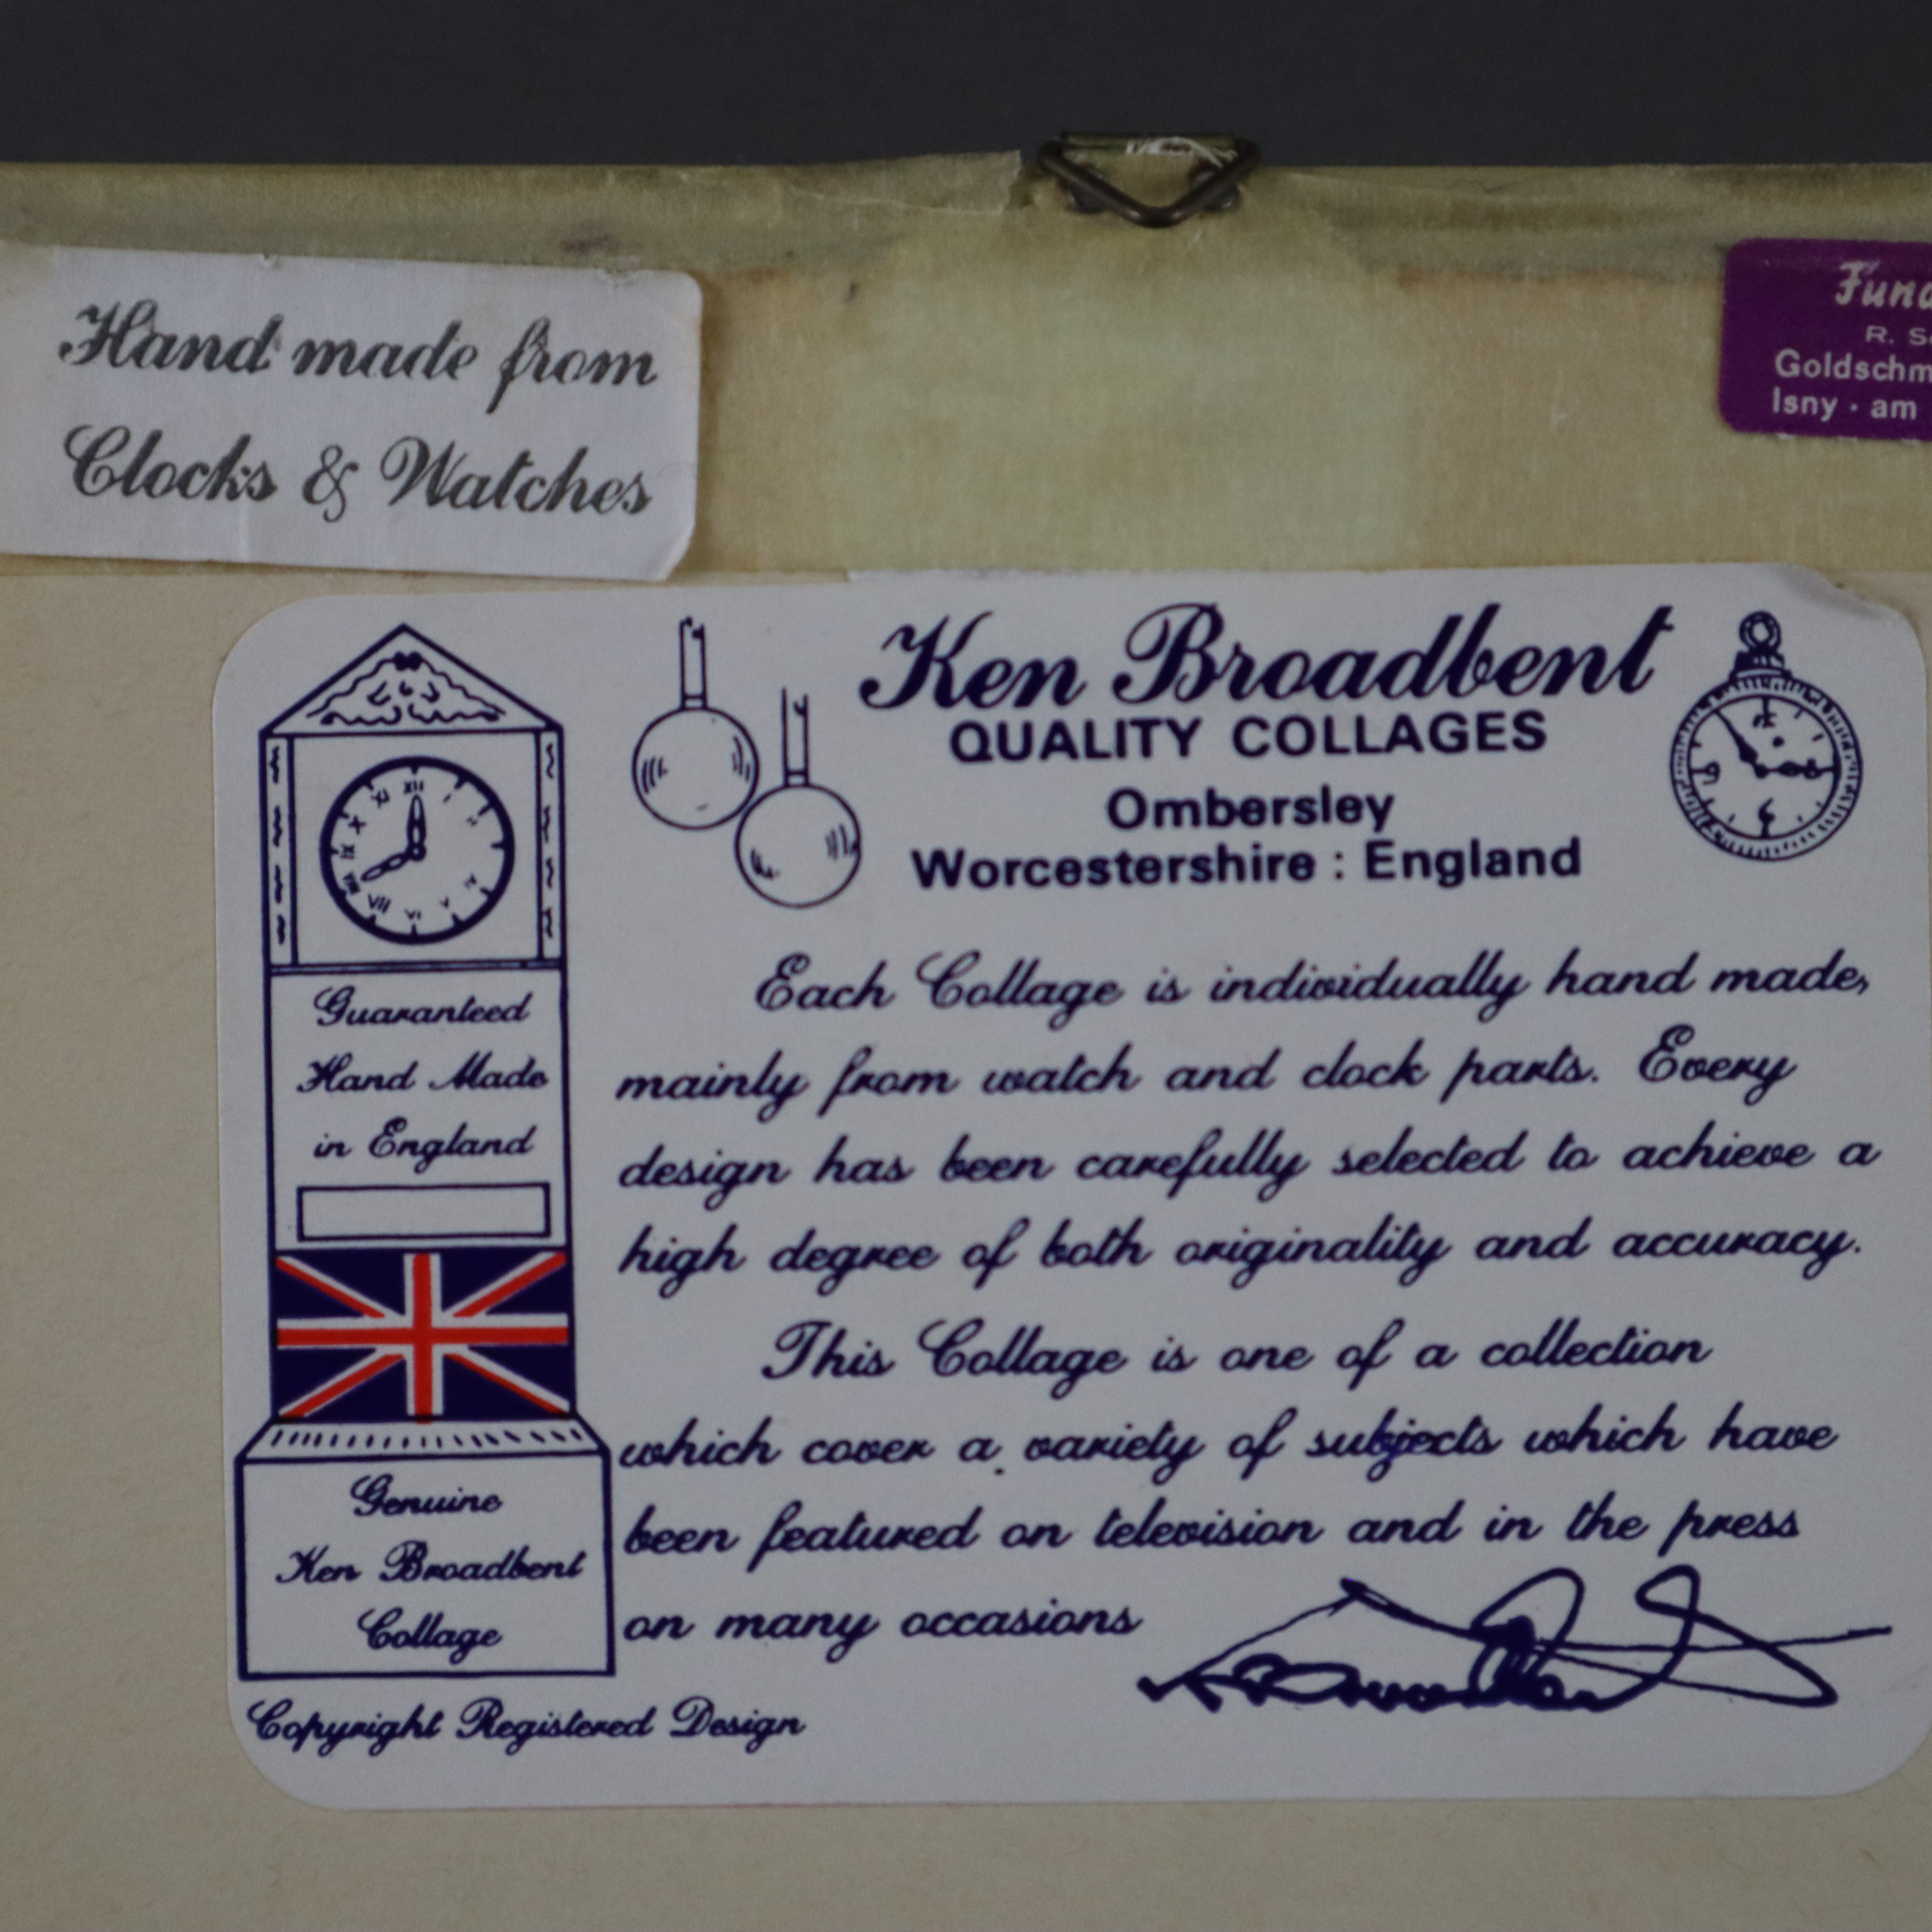 Hand made from
Clocks & Watches
R.
Isny · am
Ken Broadbent
QUALITY COLLAGES
Ombersley
Worcestershire : England
Each Collage is individually hand made,
mainly from watch and clock parts. Every
design has been carefully selected to achieve a
high degree of both originality and accuracy.
This Collage is one of a collection
which cover a variety of subjects which have
been featured on television and in the press
on many occasions
Guaranteed
Hand Made
in England
Genuine
Ken Broadbent
Collage
Copyright Registered Design